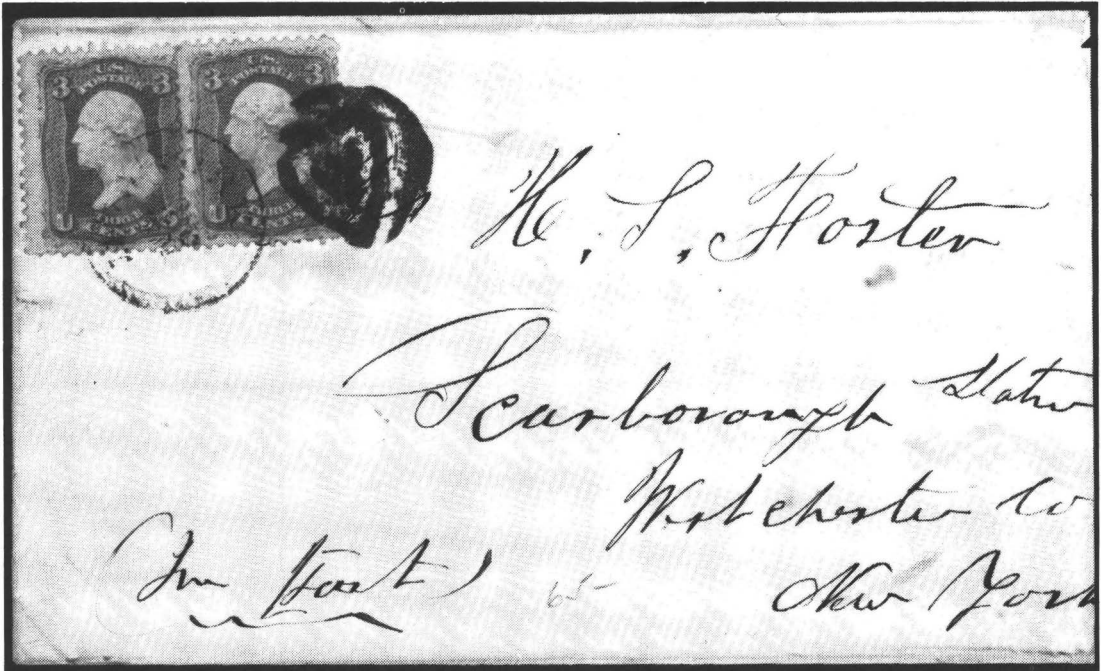 3 U.S. POSTAGE 3
U THREE CENTS S
3 U.S. POSTAGE 3
U THREE CENTS
H. S. Foster
Scarborough
Westchester Co
New York
65